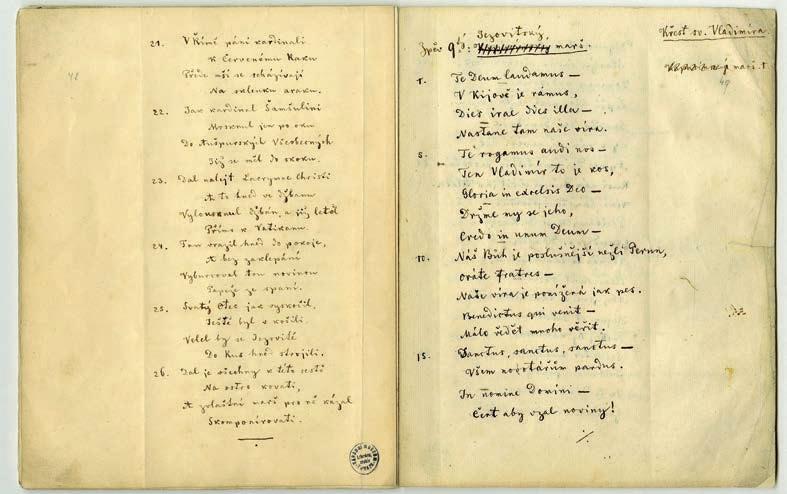 42
21. V Římě páni kardinali
K červenému Raku
Přede mší se scházívají
Na sklenku araku.
22. Jak kardinal Šamšulini
Mrsknul jen po oku
Do Aušpurských Všeobecných
Již se měl do skoku.
23. Dal nalejt Lacrymae Christi
A to hned ve džbánu
Vylousknul džbán, a již letěl
Přímo k Vatikanu.
24. Tam vrazil hned do pokoje,
A bez zaklepání
Vyburcoval tou novinou
Papeže ze spaní.
25. Svatý Otec jak vyskočil,
Ještě byl v košili.
Velel by se Jezovité
Do Rus hned strojili.
26. Dal je všechny k této cestě
Na ostro kovati,
A zvlaštní marš pro ně kázal
Skomponírovati.
Křest sv. Vladimíra
49
Jezovitský
Zpěv 9tý: marš.
1. Te Deum laudamus —
V Kijově je rámus,
Dies irae dies illa —
Nastane tam naše víra.
5. Te rogamus audi nos —
Ten Vladimír to je kos,
Gloria in excelsis Deo —
Držme my se jeho,
Credo in unum Deum —
10. Náš Bůh je poslušnější nežli Perun,
Oráte fratres —
Naše víra je ponížená jak pes.
Benedictus qui venit —
Málo vědět mnoho věřit.
15. Sanctus, sanctus, sanctus —
Všem nohotářům pardus.
In nomine Domini —
Čert aby vzal noviny!